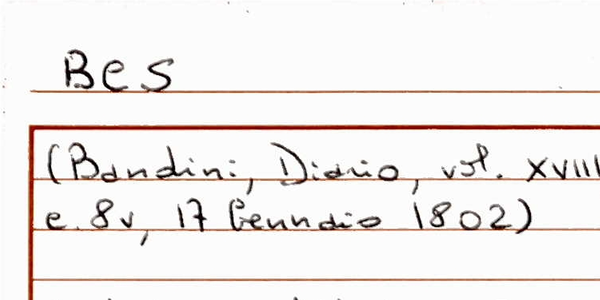 Bes
(Bandini, Diario, vol. XVIII
c. 8v, 17 Gennaio 1802)